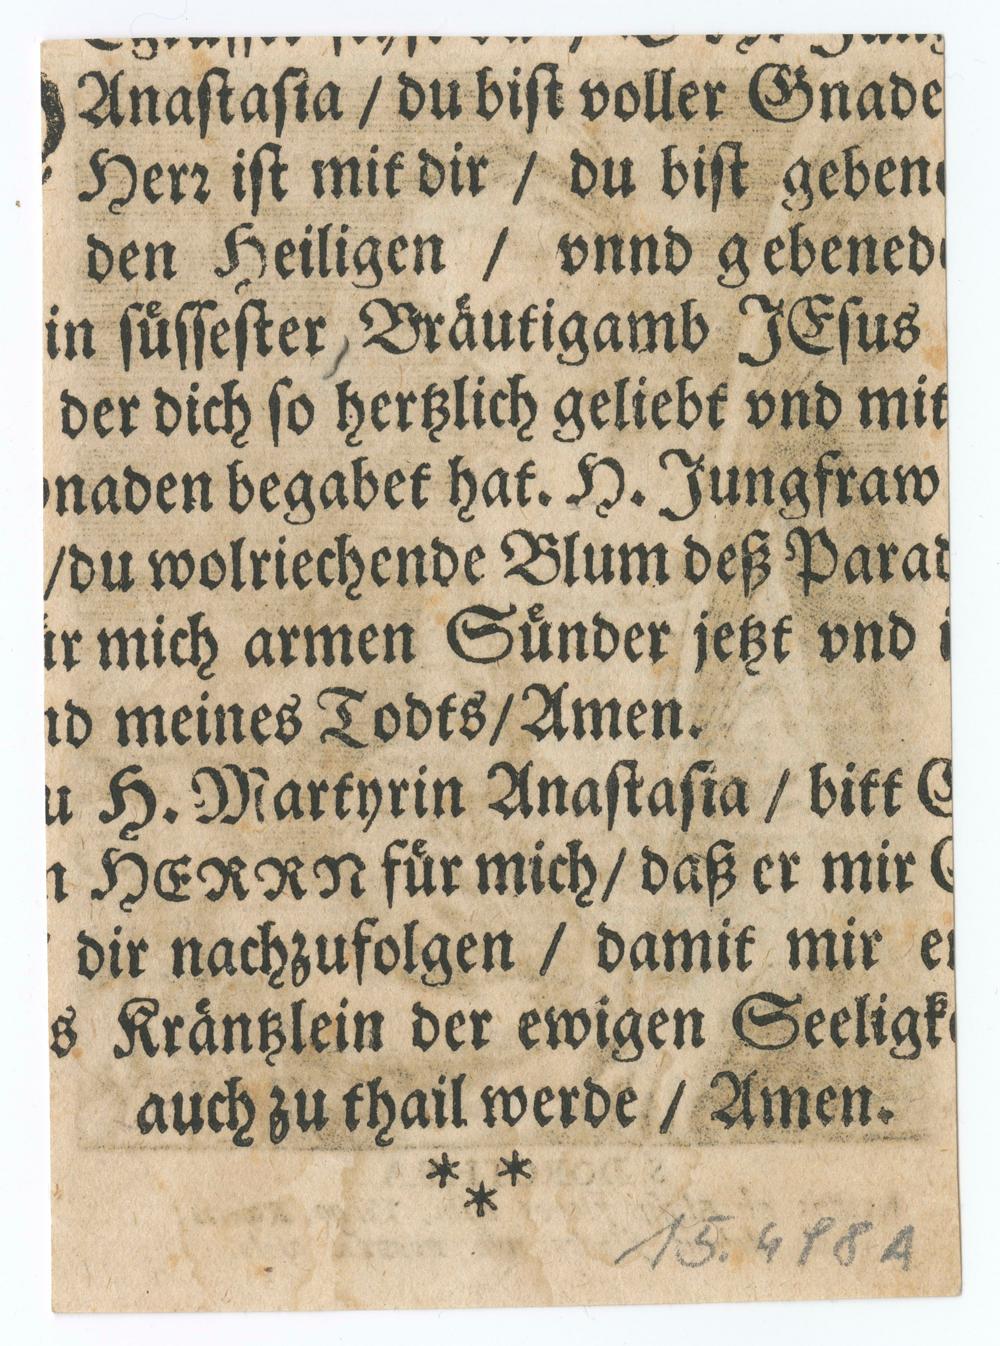 Anastasia / du bist voller Gnade
Herr ist mit dir / du bist geben
den Heiligen / vnnd gebened
in süssester, Bräutigamb JEsus
der dich so hertzlich geliebt vnd mit
naden begabet hat. H. Jungfraw
/du wolriechende Blum deß Parad
ür mich armen Sünder jetzt vnd i
nd meines Todts/Amen.
u H. Martyrin Anastasia / bitt G
n HERRN für mich/ daß er mir G
dir nachzufolgen / damit mir e
s Kräntzlein der ewigen Seeligk
auch zu thail werde / Amen.
* * *
15.498A